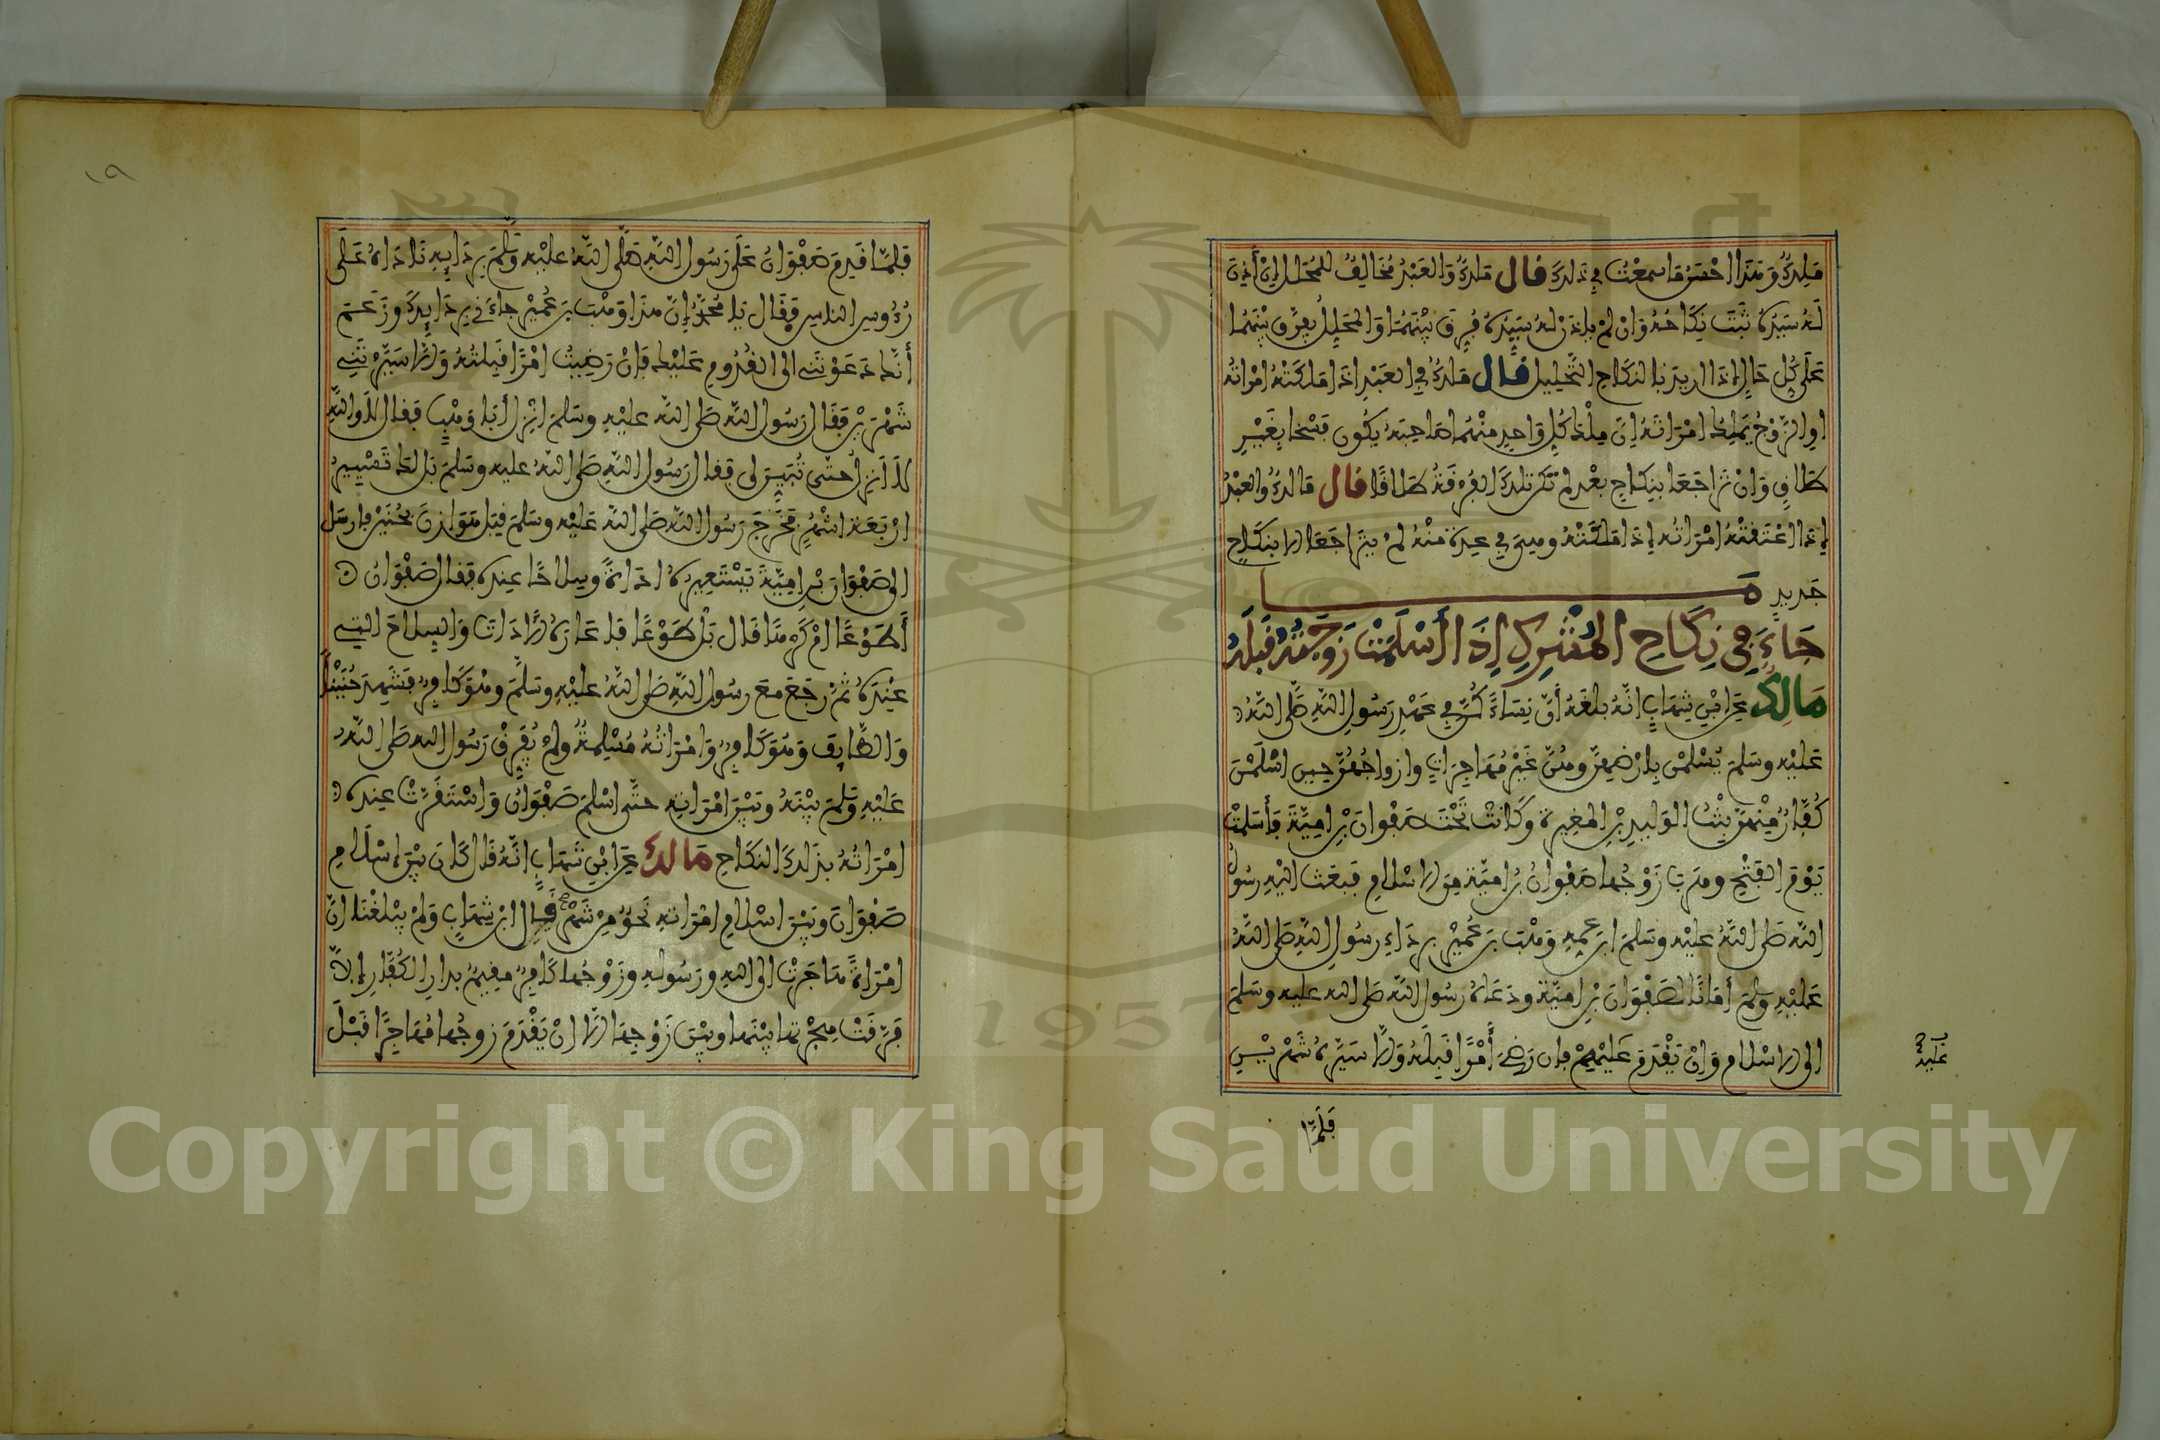 مالك وهذا احسن ما سمعت في ذلك قال مالك والعبد مخالف للمحلل ان أذن
له سيده ثبت نكاحه وان لم ياذن له سيده فرق بينهما والمحلل يفرق بينهما
على كل حال اذا اريد بالنكاح التحليل قال مالك في العبد اذا ملكته امراته
او الزوج يملك امراته ان ملك كل واحد منهما صاحبه يكون فسخا بغير
طلاق وان تراجعا بنكاح بعد لم تكن تلك الفرقة طلاقا قال مالك والعبد
اذا اعتقته امراته اذا ملكته وهي في عدة منه لم يتراجعا الا بنكاح
جديد ما
جاء في نكاح المشرك اذا أسلمت زوجته قبله
مالك عن ابن شهاب انه بلغه أن نساء كن في عهد رسول الله صلى الله
عليه وسلم يسلمن بارضهن وهن غير مهاجرات وازواجهن حين اسلمن
كفار منهن بنت الوليد بن المغيرة وكانت تحت صفوان بن امية فأسلمت
يوم الفتح وهرب زوجها صفوان بن امية من الاسلام فبعث اليه رسول
الله صلى الله عليه وسلم ابن عمه وهب بن عمير برداء رسول الله صلى الله
عليه وسلم أمانا لصفوان بن امية ودعاه رسول الله صلى الله عليه وسلم
الى الاسلام وان يقدم عليه فان رضي أمرا قبله والا سيره شهرين
فلما
فلما قدم صفوان على رسول الله صلى الله عليه وسلم بردايه ناداه على
رءوس الناس فقال يا محمد إن هذا وهب بن عمير جاءني بردايك وزعم
أنك دعوتني الى القدوم عليك فان رضيت امرا قبلته والا سيرتني
شهرين فقال رسول الله صلى الله عليه وسلم انزل أبا وهب فقال لا والله
لا انزل حتى تبين لي فقال رسول الله صلى الله عليه وسلم بل لك تسيير
اربعة اشهر فخرج رسول الله صلى الله عليه وسلم قبل هوازن بحنين فارسل
الى صفوان بن امية يستعيره اداة وسلاحا عنده فقال صفوان
أطوعا ام كرها فقال بل طوعا فاعاره الاداة والسلاح التي
عنده ثم رجع مع رسول الله صلى الله عليه وسلم وهو كافر فشهد حنينا
والطايف وهو كافر وامراته مسلمة ولم يفرق رسول الله صلى الله
عليه وسلم بينه وبين امراته حتى اسلم صفوان واستقرت عنده
امراته بذلك النكاح مالك عن ابن شهاب انه قال كان بين اسلام
صفوان وبين اسلام امراته نحو من شهر قال ابن شهاب ولم يبلغنا ان
امراة هاجرت الى الله ورسوله وزوجها كافر مقيم بدار الكفار الا
فرقت هجرتها بينها وبين زوجها الا ان يقدم زوجها مهاجرا قبل
١٩
Copyright © King Saud University
1957